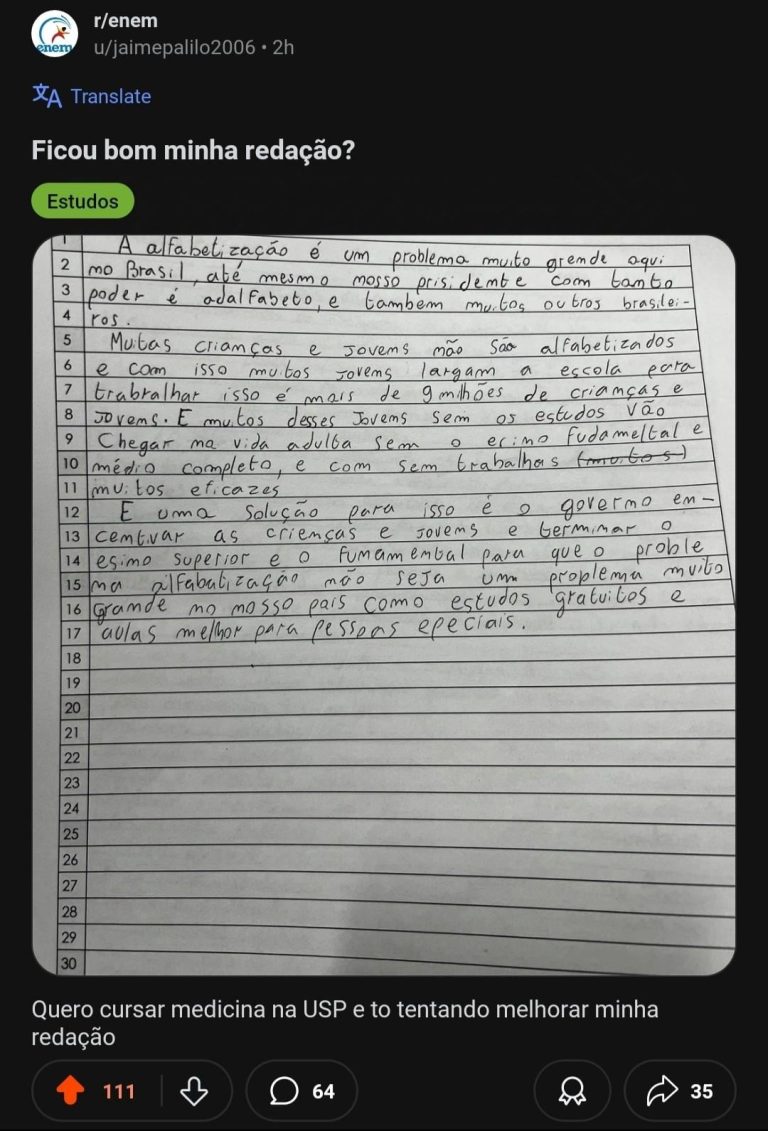 r/enem
enem
u/jaimepalilo2006 • 2h
Translate
Ficou bom minha redação?
Estudos
1 A alfabetização é um problema muito grende aqui
2 mo Brasil, até mesmo mosso prisidemte com tamto
3 poder é adalfabeto, e tambem muitos outros brasilei-
4 ros.
5 Muitas crianças e jovens mão são alfabetizados
6 e com isso muitos jovens largam a escola para
7 trabralhar isso é mais de 9 milhões de crianças e
8 Jovens. E muitos desses Jovens sem os estudos vão
9 Chegar ma vida adulta sem o ecimo fudameltal e
10 médio completo, e com sem trabalhos (muitos)
11 muitos eficazes
12 E uma solução para isso é o governo en-
13 cemtivar as crienças e jovens e terminar o
14 esimo superior e o fumamemtal para que o proble
15 ma alfabatização mão seja um proplema muito
16 Grande mo mosso pais como estudos gratuitos e
17 aulas melhor para pessoas epeciais.
18
19
20
21
22
23
24
25
26
27
28
29
30
Quero cursar medicina na USP e to tentando melhorar minha
redação
111
64
35